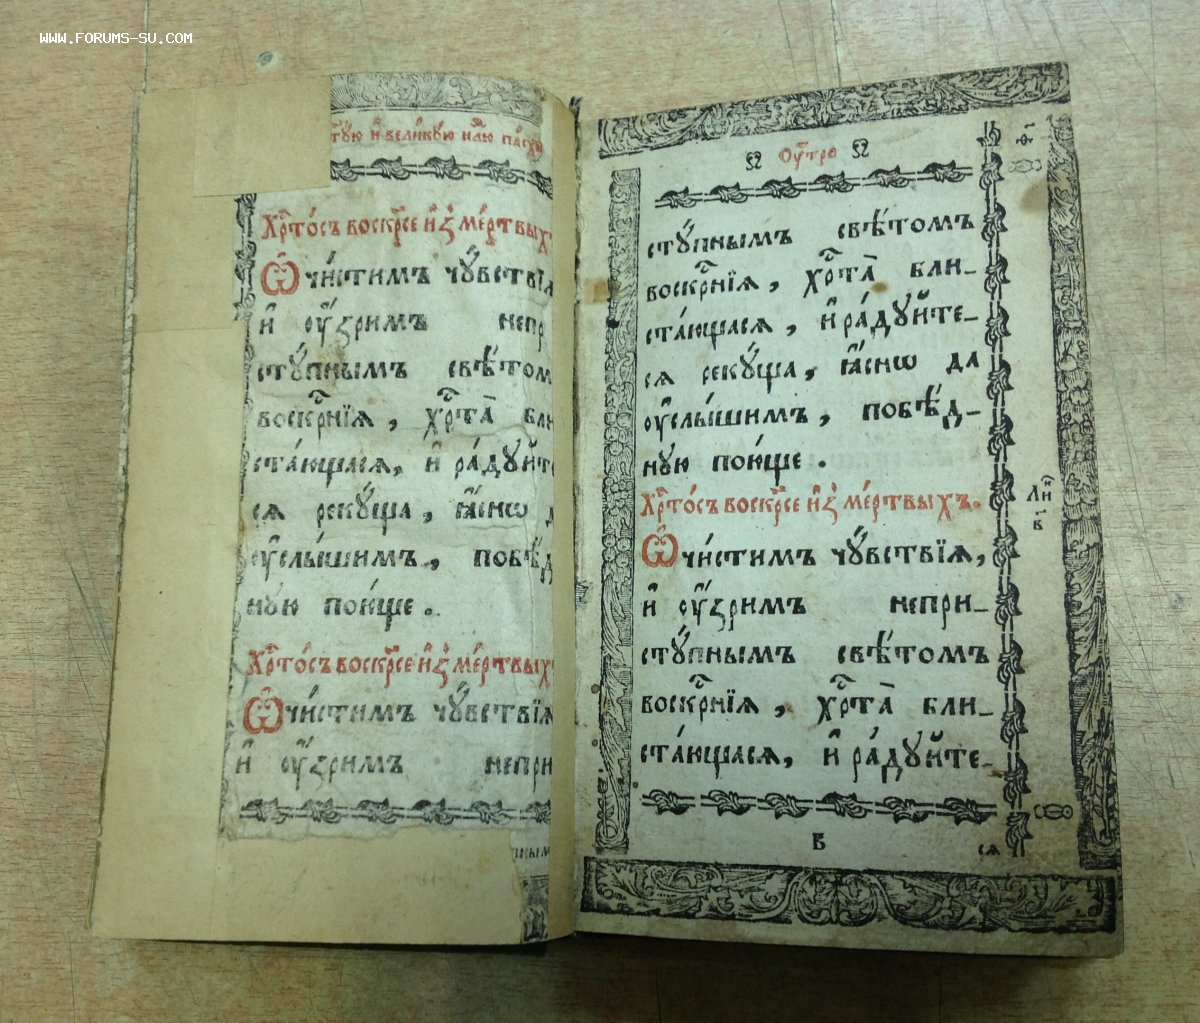 WWW.FORUMS-SU.COM
и҆ вели́кую нлⷣю па́схи
Хрⷭ҇то́съ воскр҃се и҆з̾ ме́ртвыхъ
Ѡ҆чи́стимъ чꙋ́вствїѧ
и҆ ᲂу҆́зримъ непри
стꙋ́пнымъ свѣ́том
воскрⷭ҇нїѧ, хрⷭ҇та̀ бли
ста́ющасѧ, и҆ ра́дꙋйте
сѧ рекꙋ́ща, ꙗ҆́снѡ д
ᲂу҆слы́шимъ, побѣ́д
нꙋю пою́ще.
Хрⷭ҇то́съ воскр҃се и҆з̾ ме́ртвыхъ
Ѡ҆чи́стимъ чꙋ́вствїѧ
и҆ ᲂу҆́зримъ непри
пнымъ
Ѡ Оу҆́тро Ѡ
стꙋ́пнымъ свѣ́томъ
воскрⷭ҇нїѧ, хрⷭ҇та̀ бли_
ста́ющасѧ, и҆ ра́дꙋйте_
сѧ рекꙋ́ща, ꙗ҆́снѡ да
ᲂу҆слы́шимъ, побѣ́д_
нꙋю пою́ще.
Хрⷭ҇то́съ воскр҃се и҆з̾ ме́ртвыхъ.
Ѡ҆чи́стимъ чꙋ́вствїѧ,
и҆ ᲂу҆́зримъ непри_
стꙋ́пнымъ свѣ́томъ
воскрⷭ҇нїѧ, хрⷭ҇та̀ бли_
ста́ющасѧ, и҆ ра́дꙋйте_
в
сѧ
Ли
в